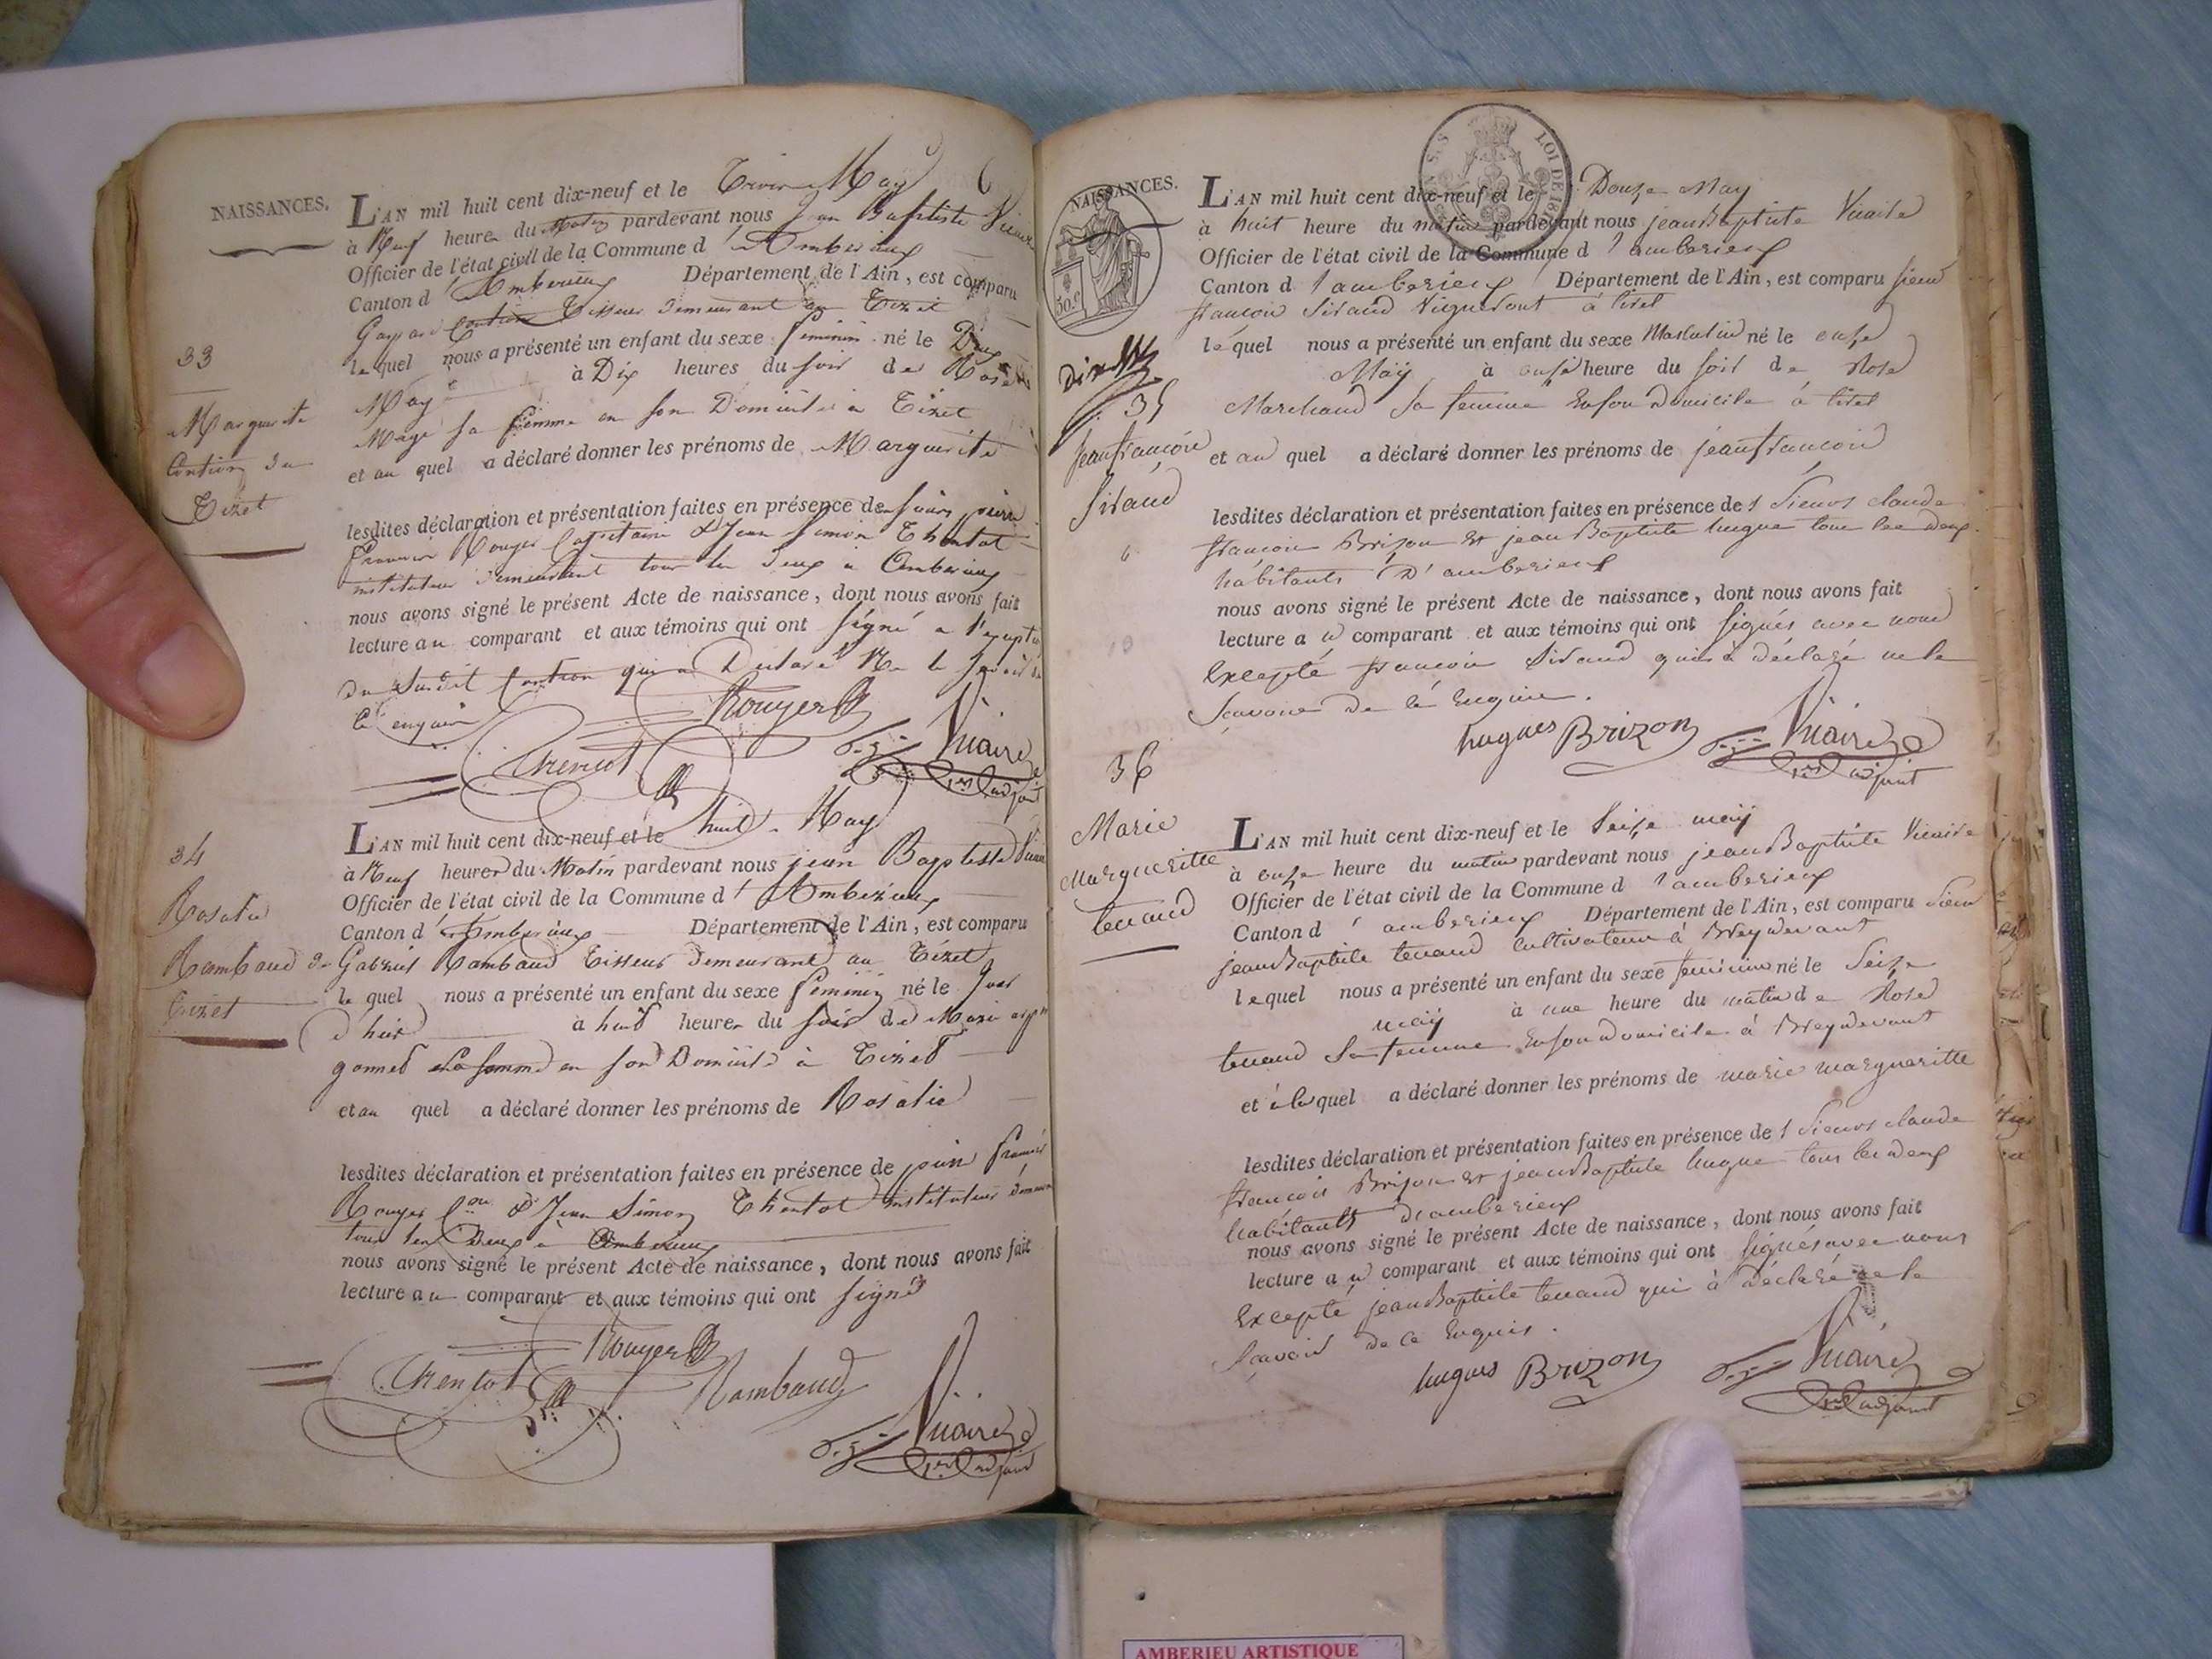 NAISSANCES.
L'AN mil huit cent dix-neuf et le Trois May
à Neuf heures du Matin pardevant nous Jean Baptiste Vicaire
Officier de l'état civil de la Commune d'Amberieux
Canton d'Amberieux Département de l'Ain, est comparu
Gaspard Tisseur demeurant au Tiret
le quel nous a présenté un enfant du sexe feminin né le Deux
May à Dix heures du soir de
sa femme en son Domicile à Tiret
et au quel a déclaré donner les prénoms de Marguerite
lesdites déclaration et présentation faites en présence de sieurs pierre
Rouyer & Jean Simon
instituteur demeurant tous les deux à Amberieux
nous avons signé le présent Acte de naissance, dont nous avons fait
lecture au comparant et aux témoins qui ont signé a l'exception
du Susdit qui a Declaré Ne le Savoir
enquis
Rouyer
Vicaire
1er adjoint
33
Marguerite
du
Tiret
L'AN mil huit cent dix-neuf et le huit May
à Neuf heures du Matin pardevant nous jean Baptiste Vicaire
Officier de l'état civil de la Commune d'Amberieux
Canton d'Amberieux Département de l'Ain, est comparu
Gabriel Rambaud Tisseur demeurant au Tiret
le quel nous a présenté un enfant du sexe feminin né le jour
d'hier à huit heures du soir de
sa femme en son Domicile à Tiret
et au quel a déclaré donner les prénoms de Rosalie
lesdites déclaration et présentation faites en présence de pierre
Rouyer & Jean Simon instituteur
tous les Deux à Amberieux
nous avons signé le présent Acte de naissance, dont nous avons fait
lecture au comparant et aux témoins qui ont signé
Rouyer
Rambaud
Vicaire
1er adjoint
34
Rosalie
Rambaud du
Tiret
NAISSANCES.
LOI DE
50.c
L'AN mil huit cent dix-neuf et le Douze May
à huit heure du matin pardevant nous jean Baptiste Vicaire
Officier de l'état civil de la Commune d'amberieux
Canton d'amberieux Département de l'Ain, est comparu sieur
francois Siraud Vigneront à tiret
lequel nous a présenté un enfant du sexe Masculin né le onze
May à onse heure du soir de Rose
Marchand sa femme En son domicile à tiret
et au quel a déclaré donner les prénoms de jean francois
lesdites déclaration et présentation faites en présence des Sieurs claude
francois Brison et jean Baptiste hugue tous les deux
habitants D'amberieux
nous avons signé le présent Acte de naissance, dont nous avons fait
lecture au comparant et aux témoins qui ont signés avec nous
Excepté francois Siraud qui à déclaré ne le
Scavoir de ce Enquis.
hugues Brizon Vicaire
1er adjoint
35
jean francois
Siraud
36
Marie
Margueritte
tenand
L'AN mil huit cent dix-neuf et le Seize may
à onze heure du matin pardevant nous jean Baptiste Vicaire
Officier de l'état civil de la Commune d'amberieux
Canton d'amberieux Département de l'Ain, est comparu Sieur
jean Baptiste tenand cultivateur à Breydevant
lequel nous a présenté un enfant du sexe feminin né le Seize
may à une heure du matin de Rose
tenand Sa femme En son domicile à Breydevant
et à la quel a déclaré donner les prénoms de marie margueritte
lesdites déclaration et présentation faites en présence des Sieurs claude
francois Brison et jean Baptiste hugue tous les deux
habitants d'amberieux
nous avons signé le présent Acte de naissance, dont nous avons fait
lecture au comparant et aux témoins qui ont signés avec nous
Excepté jean Baptiste tenand qui à déclaré ne le
Scavoir de ce Enquis.
hugues Brizon Vicaire
1er adjoint
AMBERIEU ARTISTIQUE